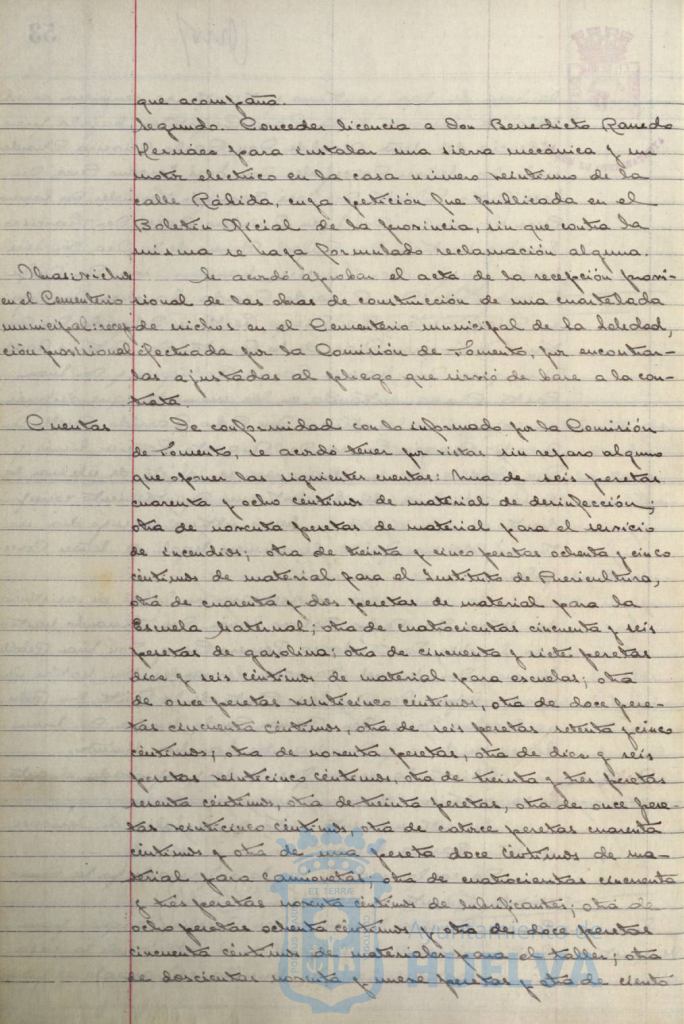 que acompaña.
Segundo. Conceder licencia a Don Benedicto Ranedo
Hernáez para instalar una sierra mecánica y un
motor eléctrico en la casa número veintiuno de la
calle Rábida, cuya petición fue publicada en el
Boletín Oficial de la provincia, sin que contra la
misma se haya formulado reclamación alguna.
nichos Se acordó aprobar el acta de la recepción provi-
en el Cementerio sional de las obras de construcción de una cuartelada
municipal: recep de nichos en el Cementerio municipal de la Soledad,
ción provisional efectuada por la Comisión de Fomento, por encontrar-
las ajustadas al pliego que sirvió de base a la con-
trata.
Cuentas De conformidad con lo informado por la Comisión
de Fomento, se acordó tener por vistas sin reparo alguno
que oponer las siguientes cuentas: Una de seis pesetas
cuarenta y ocho céntimos de material de desinfección;
otra de noventa pesetas de material para el servicio
de incendios; otra de treinta y cinco pesetas ochenta y cinco
céntimos de material para el Instituto de Puericultura,
otra de cuarenta y dos pesetas de material para la
Escuela Maternal; otra de cuatrocientas cincuenta y seis
pesetas de gasolina; otra de cincuenta y siete pesetas
diez y seis céntimos de material para escuelas; otra
de once pesetas veinticinco céntimos, otra de doce pese-
tas cincuenta céntimos, otra de seis pesetas setenta y cinco
céntimos; otra de noventa pesetas, otra de diez y seis
pesetas veinticinco céntimos, otra de treinta y tres pesetas
sesenta céntimos, otra de treinta pesetas, otra de once pese-
tas veinticinco céntimos, otra de catorce pesetas cuarenta
céntimos y otra de una peseta doce céntimos de ma-
terial para camionetas; otra de cuatrocientas cincuenta
y tres pesetas noventa céntimos de lubrificantes; otra de
ocho pesetas ochenta céntimos y otra de doce pesetas
cincuenta céntimos de materiales para el taller; otra
de doscientas noventa y nueve pesetas y otra de ciento
Ayuntamiento
HUELVA